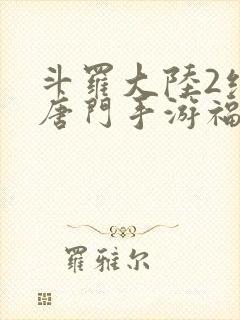 斗羅大陸2
唐門手游福
羅雅尔